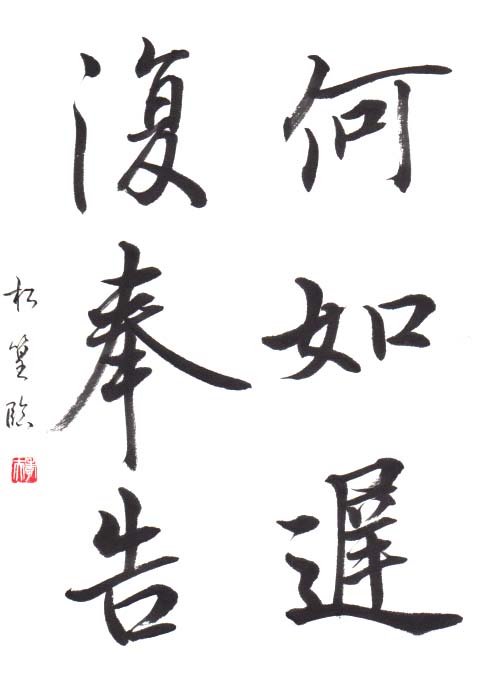 何如遲
復奉告
松篁臨